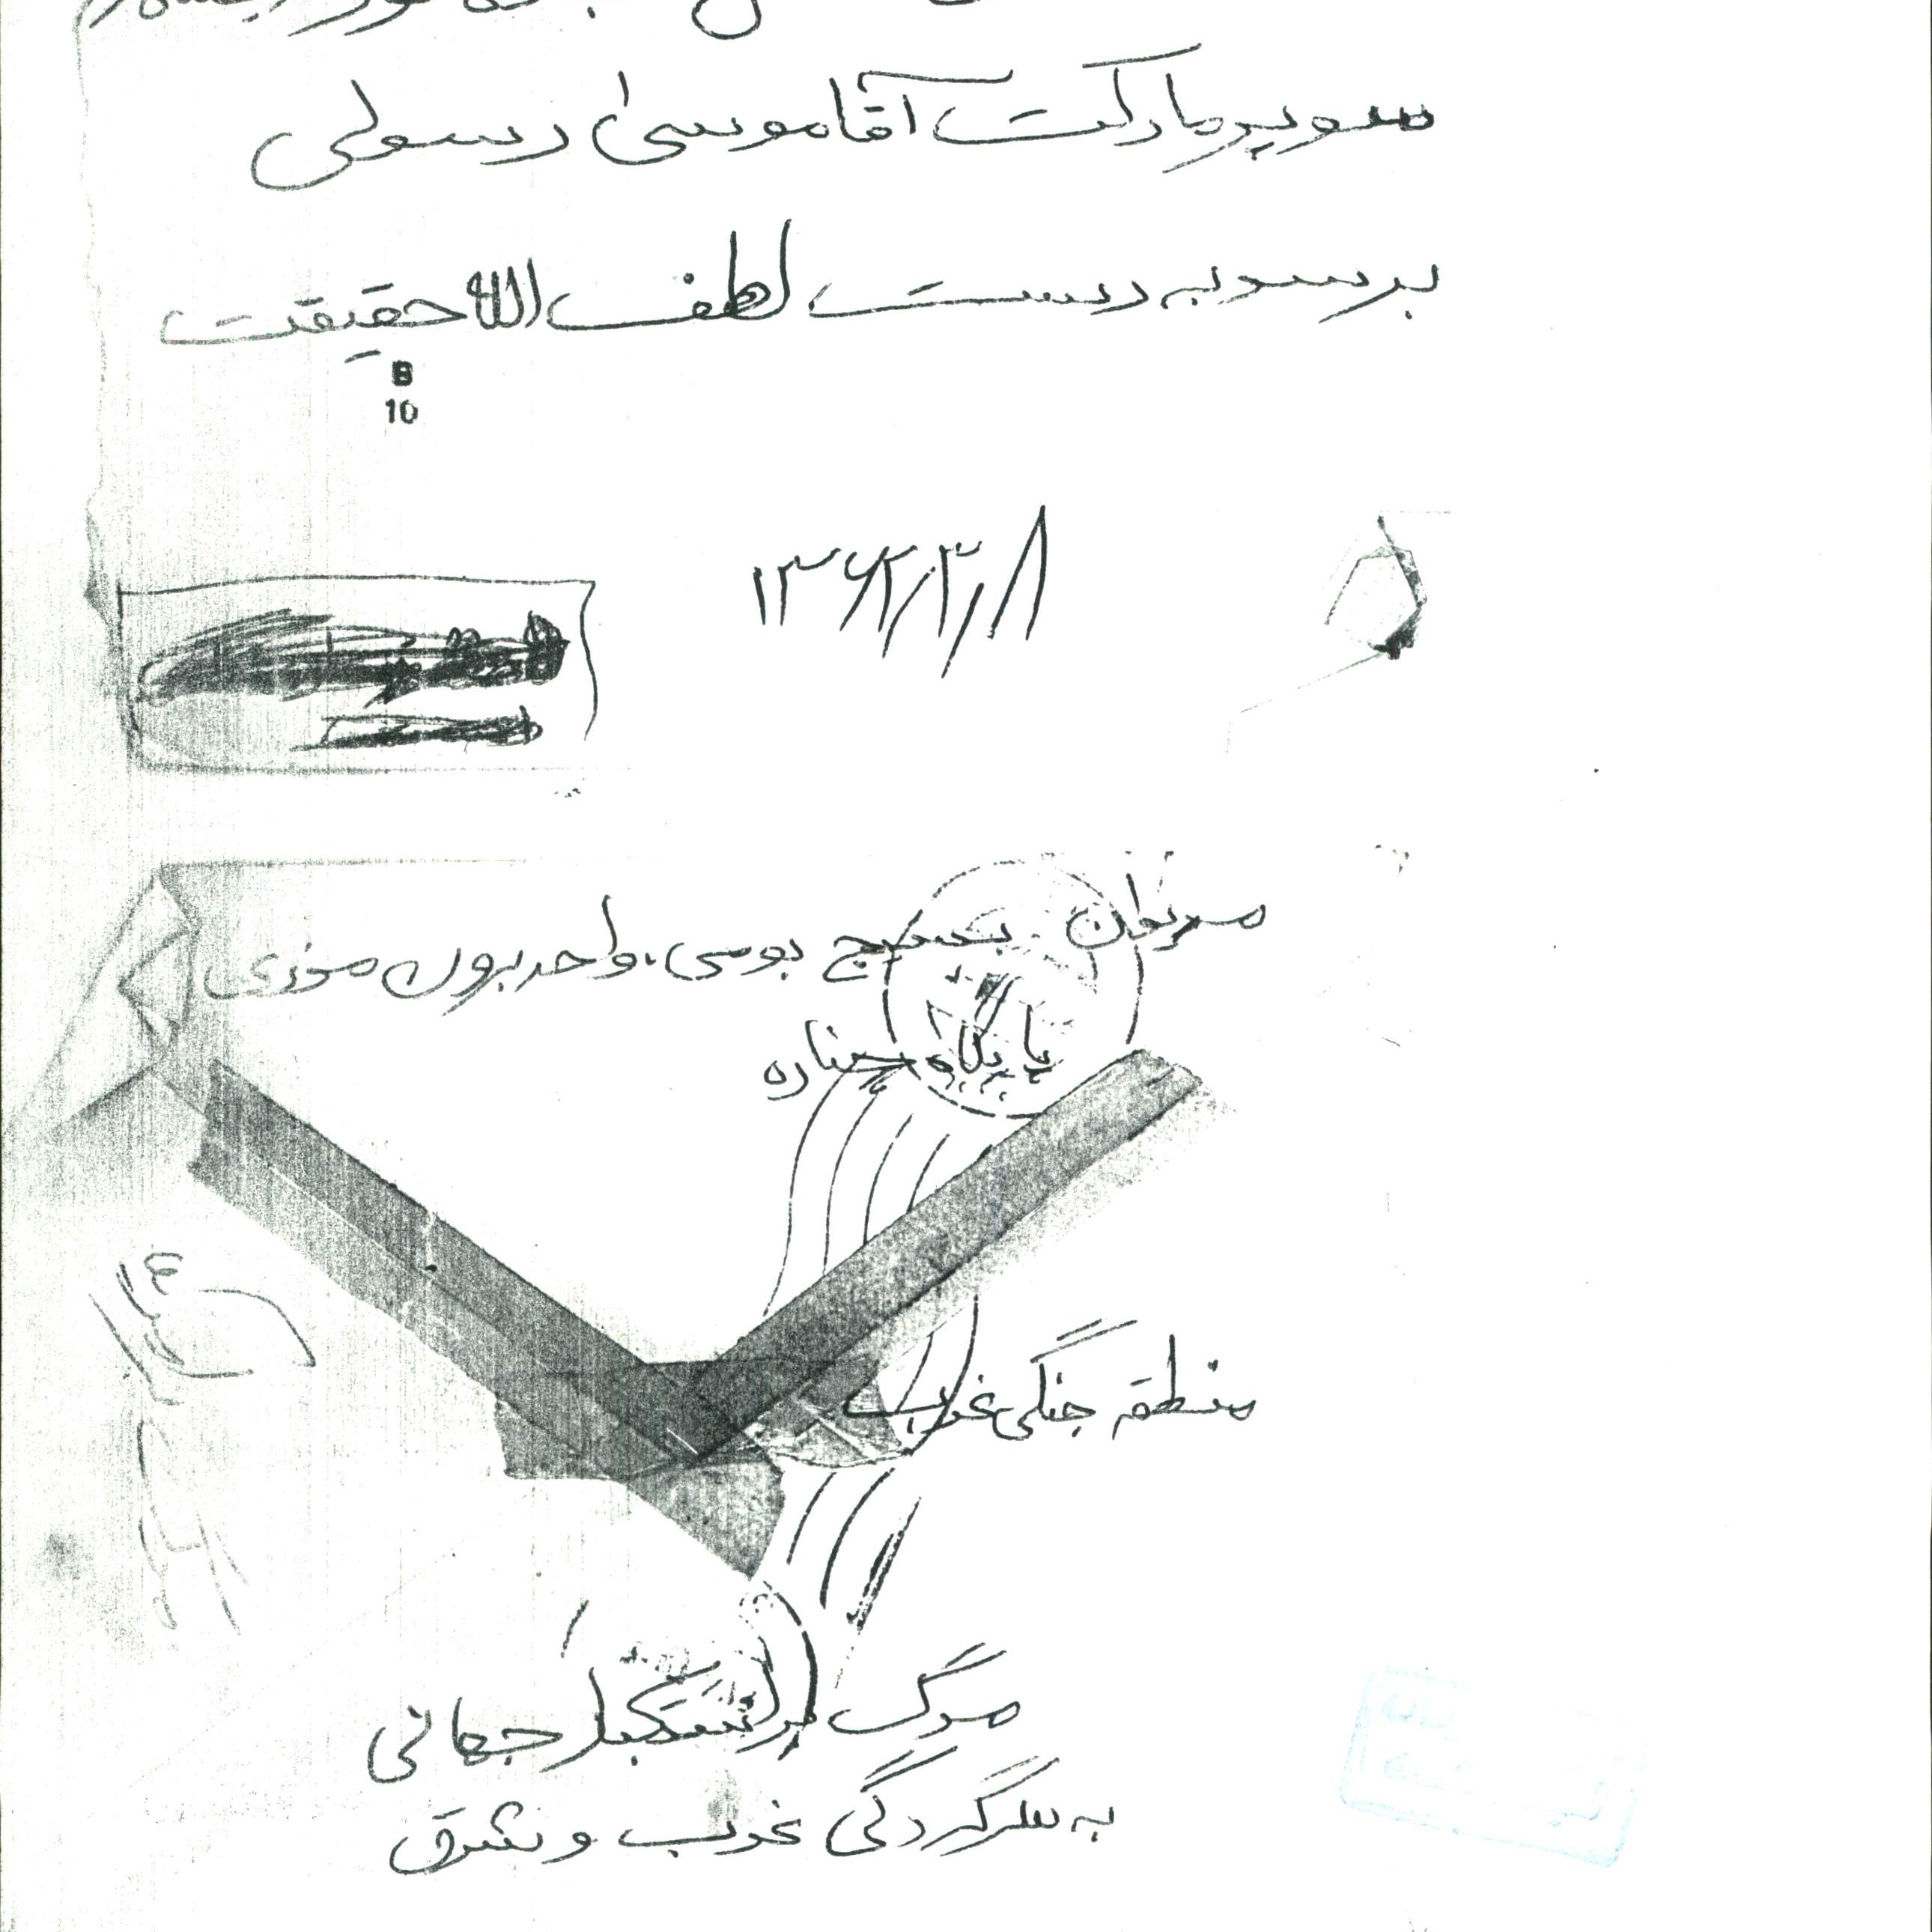 سوپر مارکت آقا موسی رسولی
برسد به دست لطف الله حقیقت
B
10
۱۳۶۲/۳/۸
مریوان بسیج بومی، واحد برون مرزی
پایگاه چناره
منطقه جنگی غرب
مرگ بر استکبار جهانی
به سرکردگی غرب و شرق